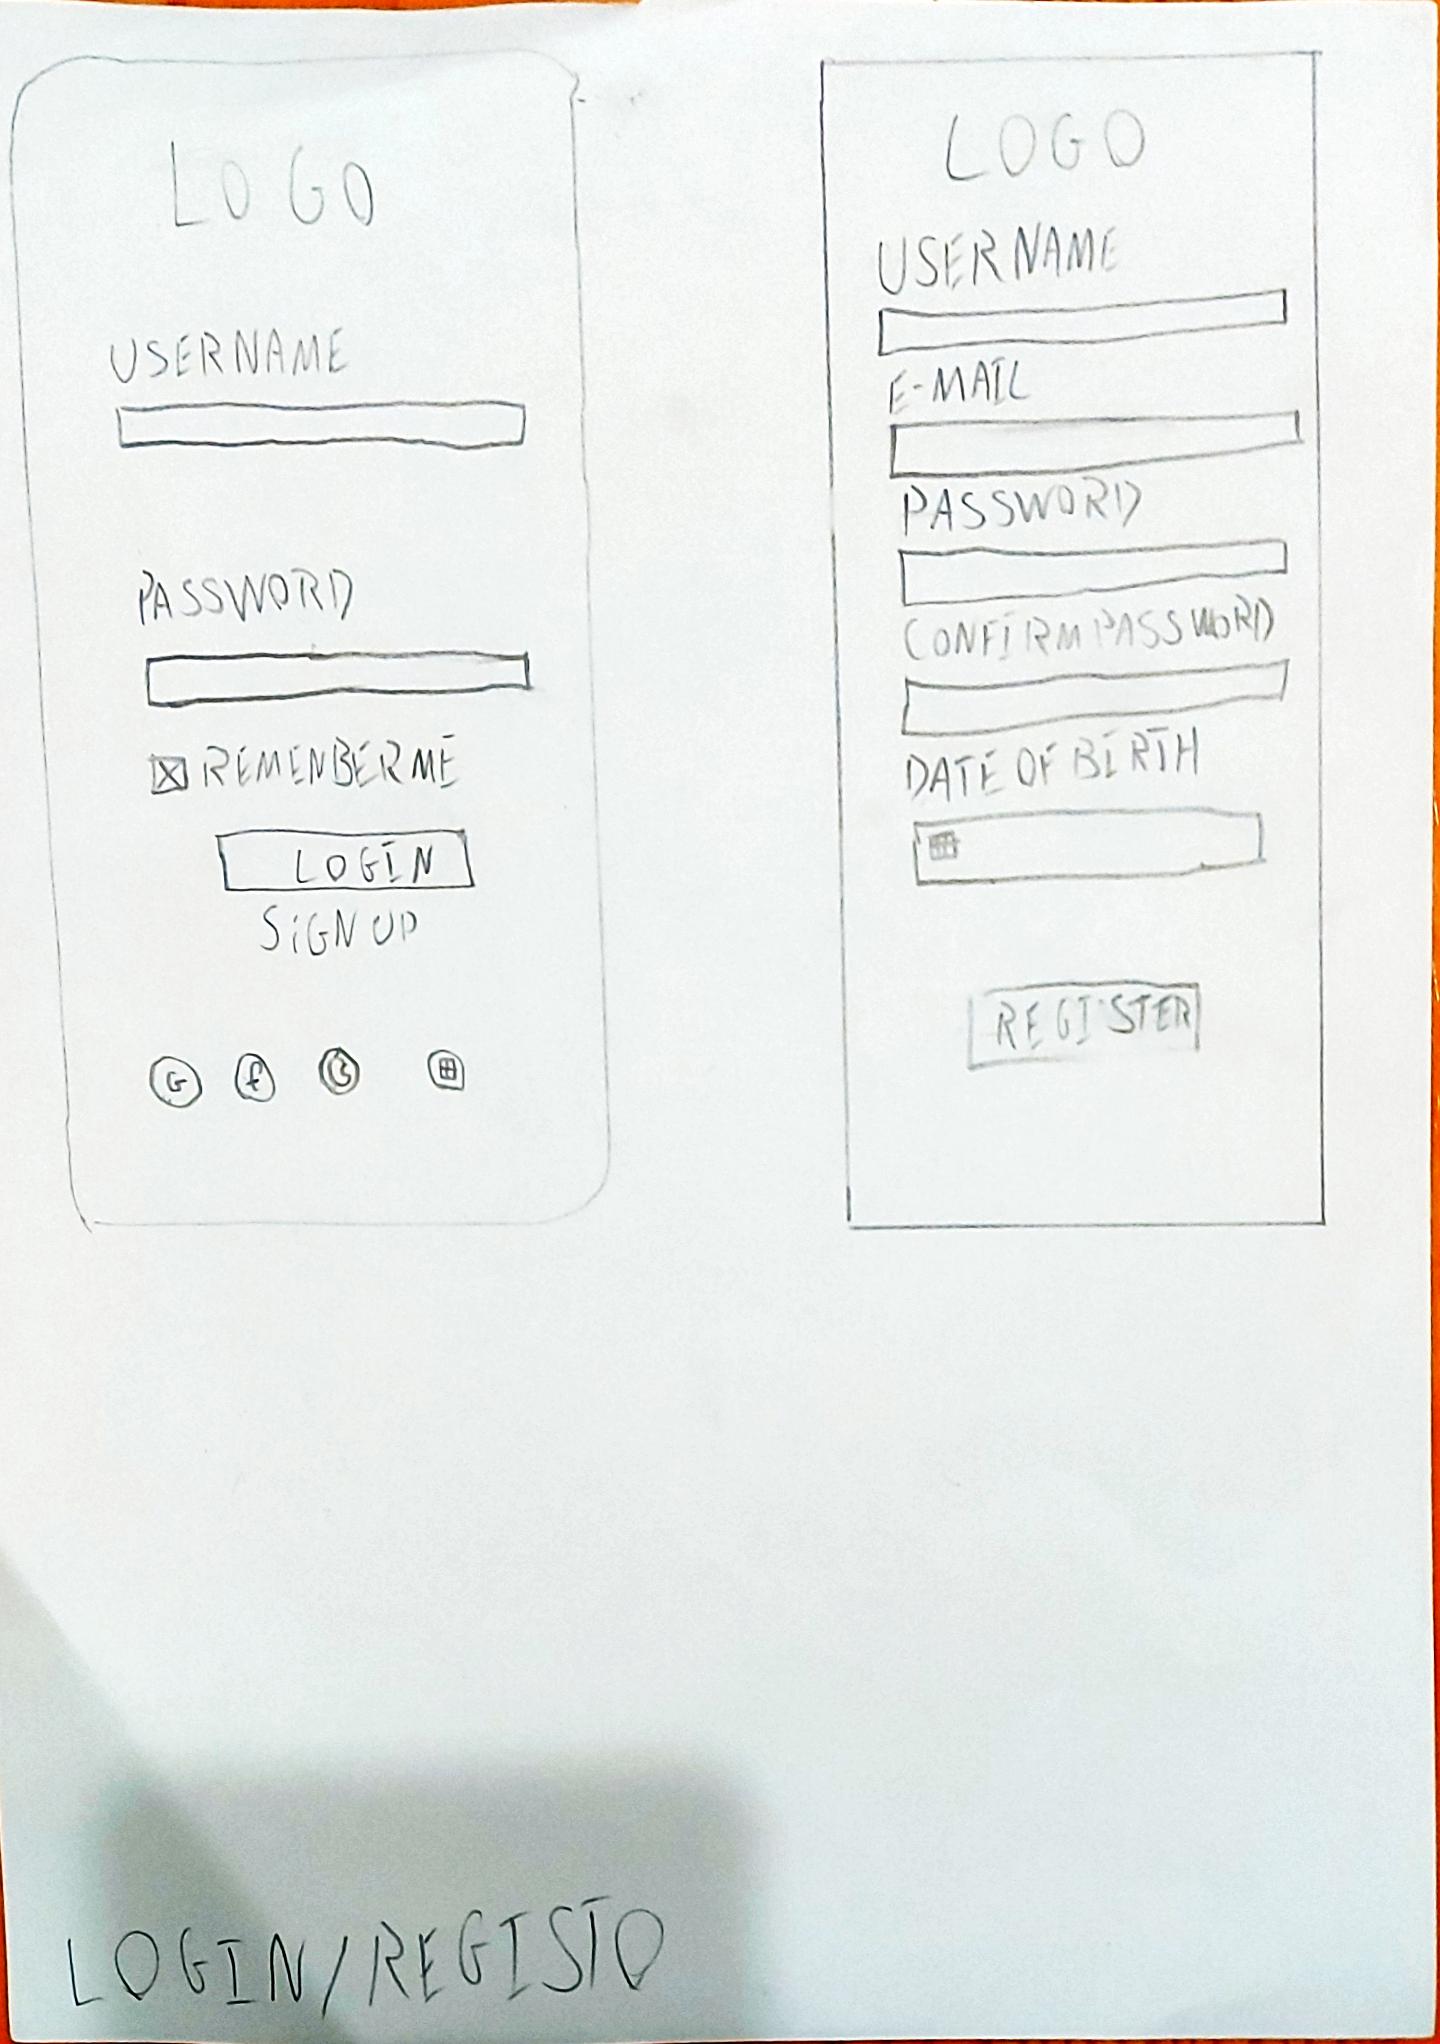 LOGO
USERNAME
PASSWORD
REMENBER ME
LOGIN
SIGN UP
G f
LOGO
USERNAME
E-MAIL
PASSWORD
CONFIRM PASSWORD
DATE OF BIRTH
REGISTER
LOGIN/REGISTO